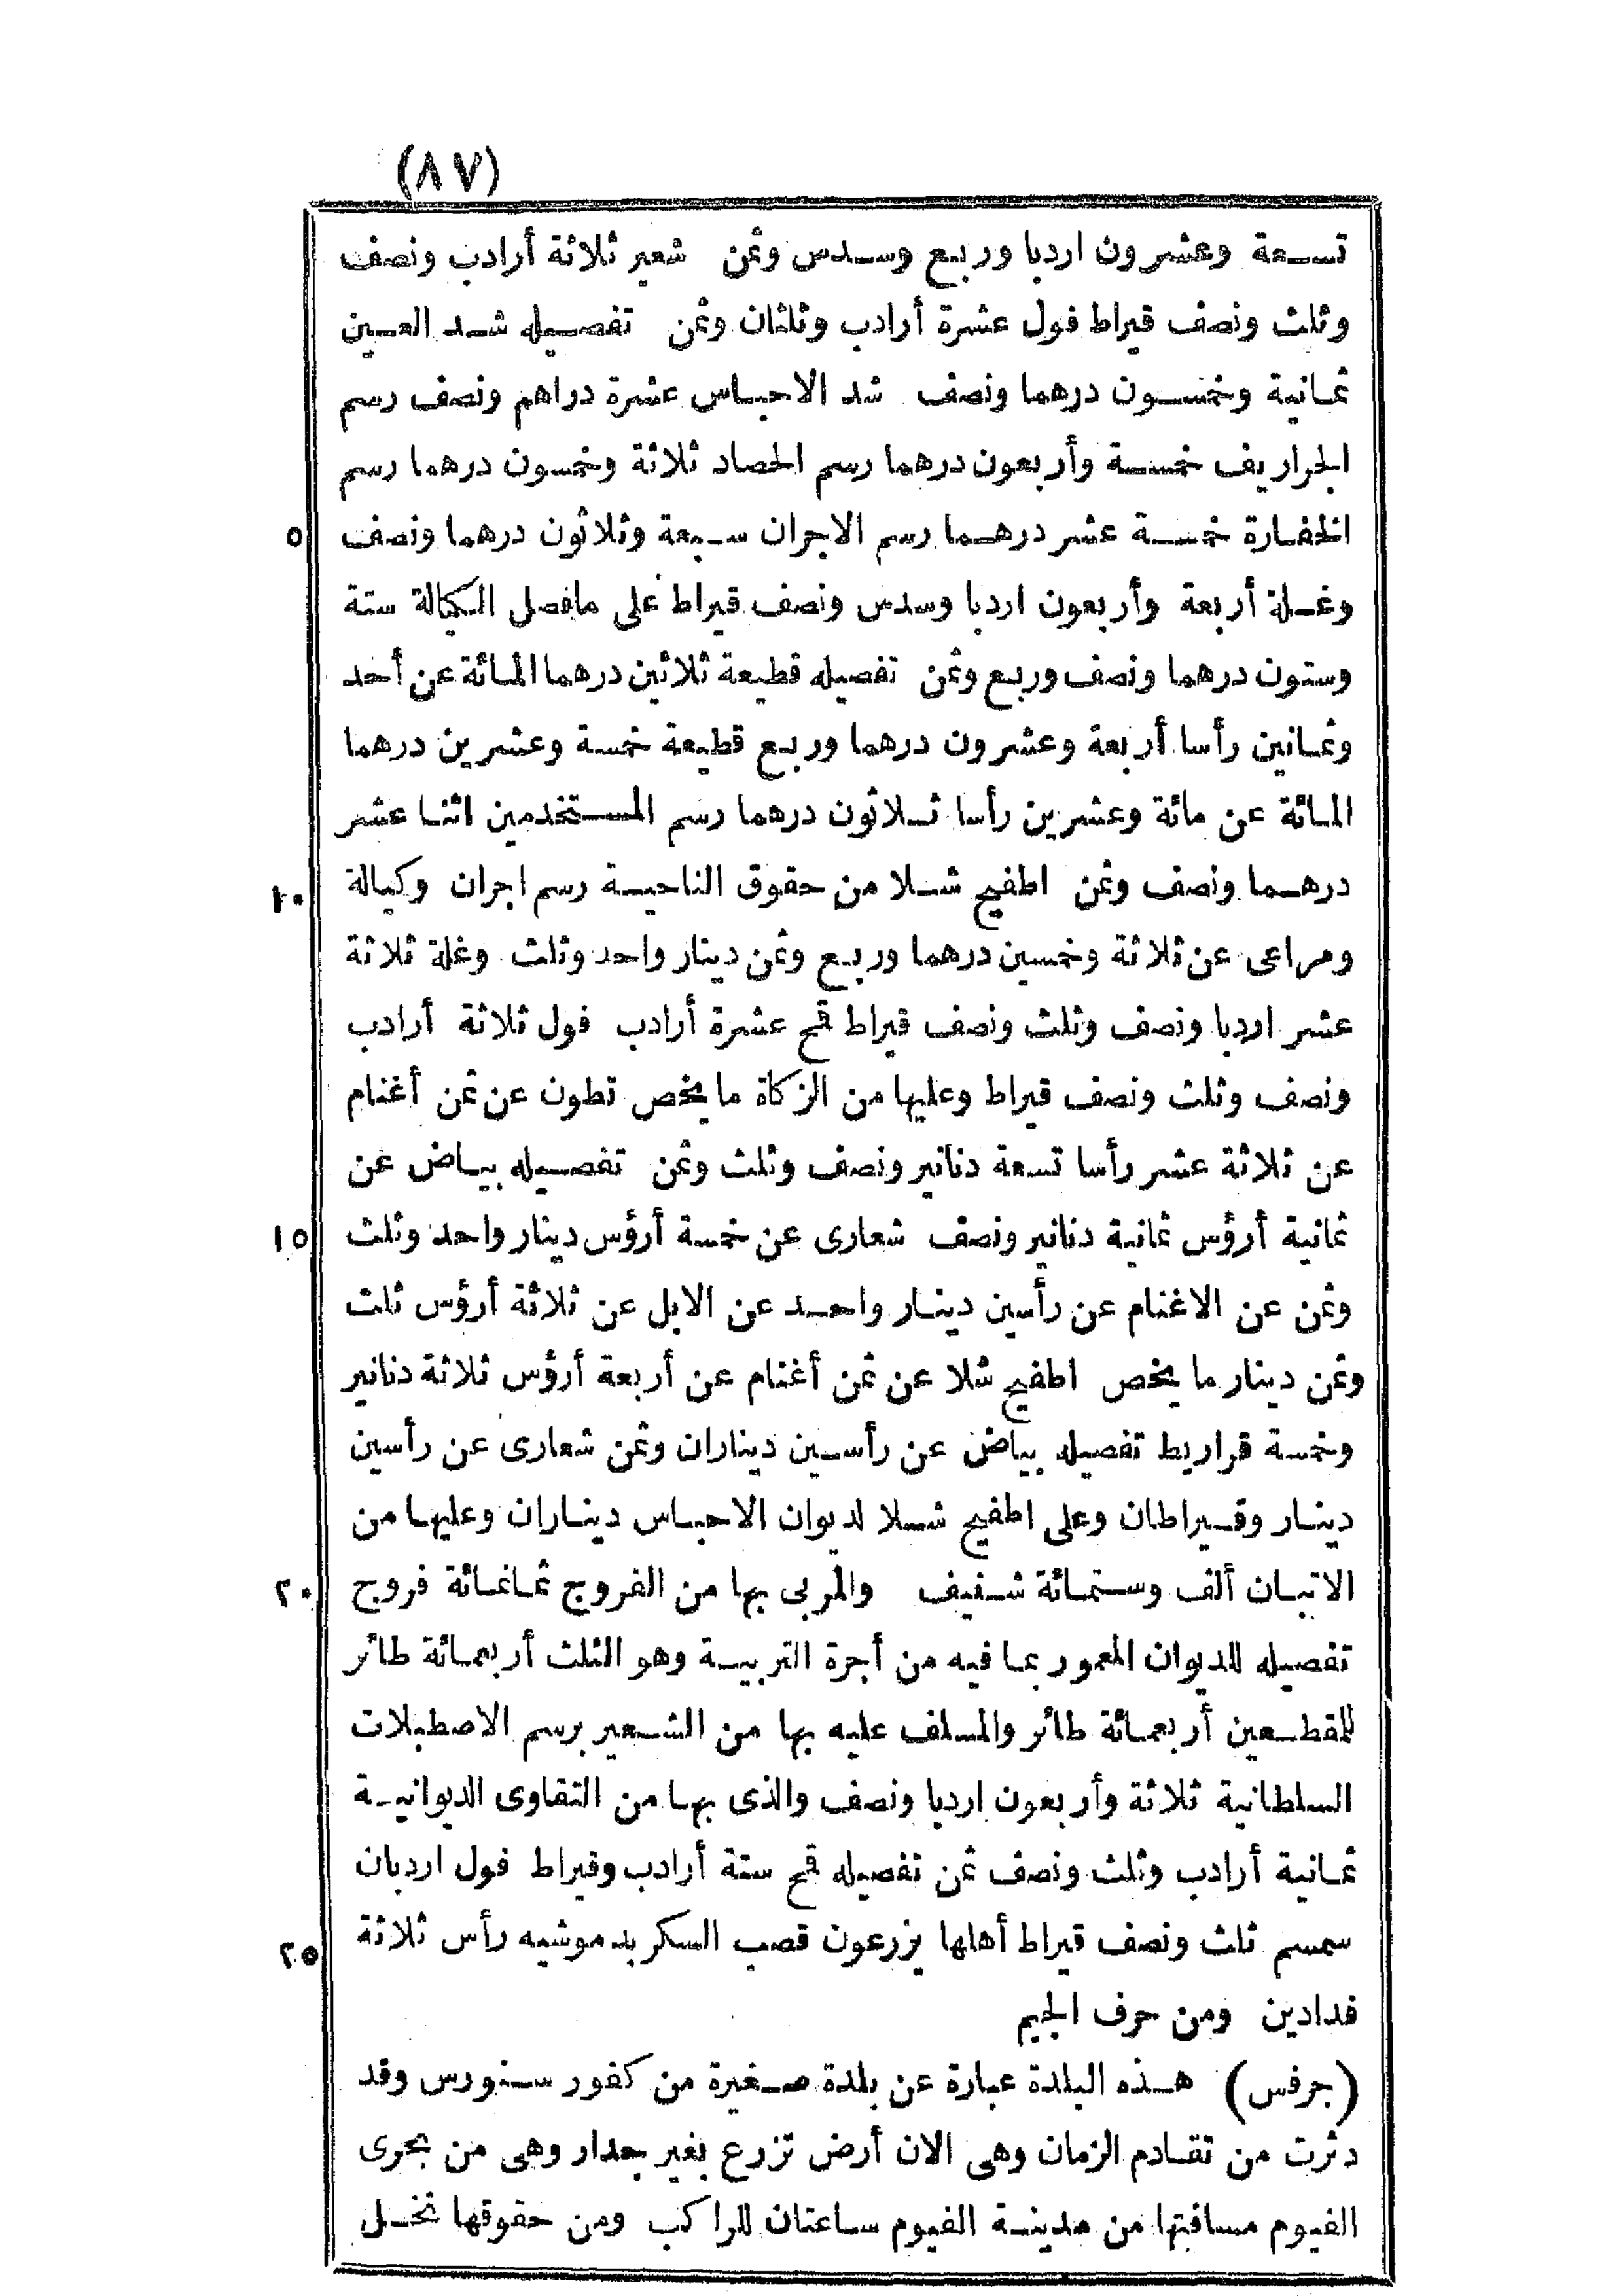 (٨٧)
تسعة وعشرون اردبا وربع وسدس وثمن شعير ثلاثة أرادب ونصف
وثلث ونصف قيراط فول عشرة أرادب وثلثان وثمن تفصيله شد العين
ثمانية وخمسون درهما ونصف شد الاحباس عشرة دراهم ونصف رسم
الجراريف خمسة وأربعون درهما رسم الحصاد ثلاثة وخمسون درهما رسم
٥ الخفارة خمسة عشر درهما رسم الاجران سبعة وثلاثون درهما ونصف
وغلة أربعة وأربعون اردبا وسدس ونصف قيراط على مافصل الكيالة ستة
وستون درهما ونصف وربع وثمن تفصيله قطيعة ثلاثين درهما المائة عن أحد
وثمانين رأسا أربعة وعشرون درهما وربع قطيعة خمسة وعشرين درهما
المائة عن مائة وعشرين رأسا ثلاثون درهما رسم المستخدمين اثنا عشر
١٠ درهما ونصف وثمن اطفيح شلا من حقوق الناحية رسم اجران وكيالة
ومراعى عن ثلاثة وخمسين درهما وربع وثمن دينار واحد وثلث وغلة ثلاثة
عشر اردبا ونصف وثلث ونصف قيراط قمح عشرة أرادب فول ثلاثة أرادب
ونصف وثلث ونصف قيراط وعليها من الزكاة ما يخص تطون عن ثمن أغنام
عن ثلاثة عشر رأسا تسعة دنانير ونصف وثلث وثمن تفصيله بياض عن
١٥ ثمانية أرؤس ثمانية دنانير ونصف شعارى عن خمسة أرؤس دينار واحد وثلث
وثمن عن الاغنام عن رأسين دينار واحد عن الابل عن ثلاثة أرؤس ثلث
وثمن دينار ما يخص اطفيح شلا عن ثمن أغنام عن أربعة أرؤس ثلاثة دنانير
وخمسة قراريط تفصيله بياض عن رأسين ديناران وثمن شعارى عن رأسين
دينار وقيراطان وعلى اطفيح شلا لديوان الاحباس ديناران وعليها من
٢٠ الاتبان ألف وستمائة شنيف والمربى بها من الفروج ثمانمائة فروج
تفصيله للديوان المعمور بما فيه من أجرة التربية وهو الثلث أربعمائة طائر
للمقطعين أربعمائة طائر والمسلف عليه بها من الشعير برسم الاصطبلات
السلطانية ثلاثة وأربعون اردبا ونصف والذى بها من التقاوى الديوانية
ثمانية أرادب وثلث ونصف ثمن تفصيله قمح ستة أرادب وقيراط فول اردبان
٢٥ سمسم ثلث ونصف قيراط أهلها يزرعون قصب السكر بدموشيه رأس ثلاثة
فدادين ومن حرف الجيم
(جرفس) هذه البلدة عبارة عن بلدة صغيرة من كفور سنورس وقد
دثرت من تقادم الزمان وهى الان أرض تزرع بغير جدار وهى من بحرى
الفيوم مسافتها من مدينة الفيوم ساعتان للراكب ومن حقوقها نخل